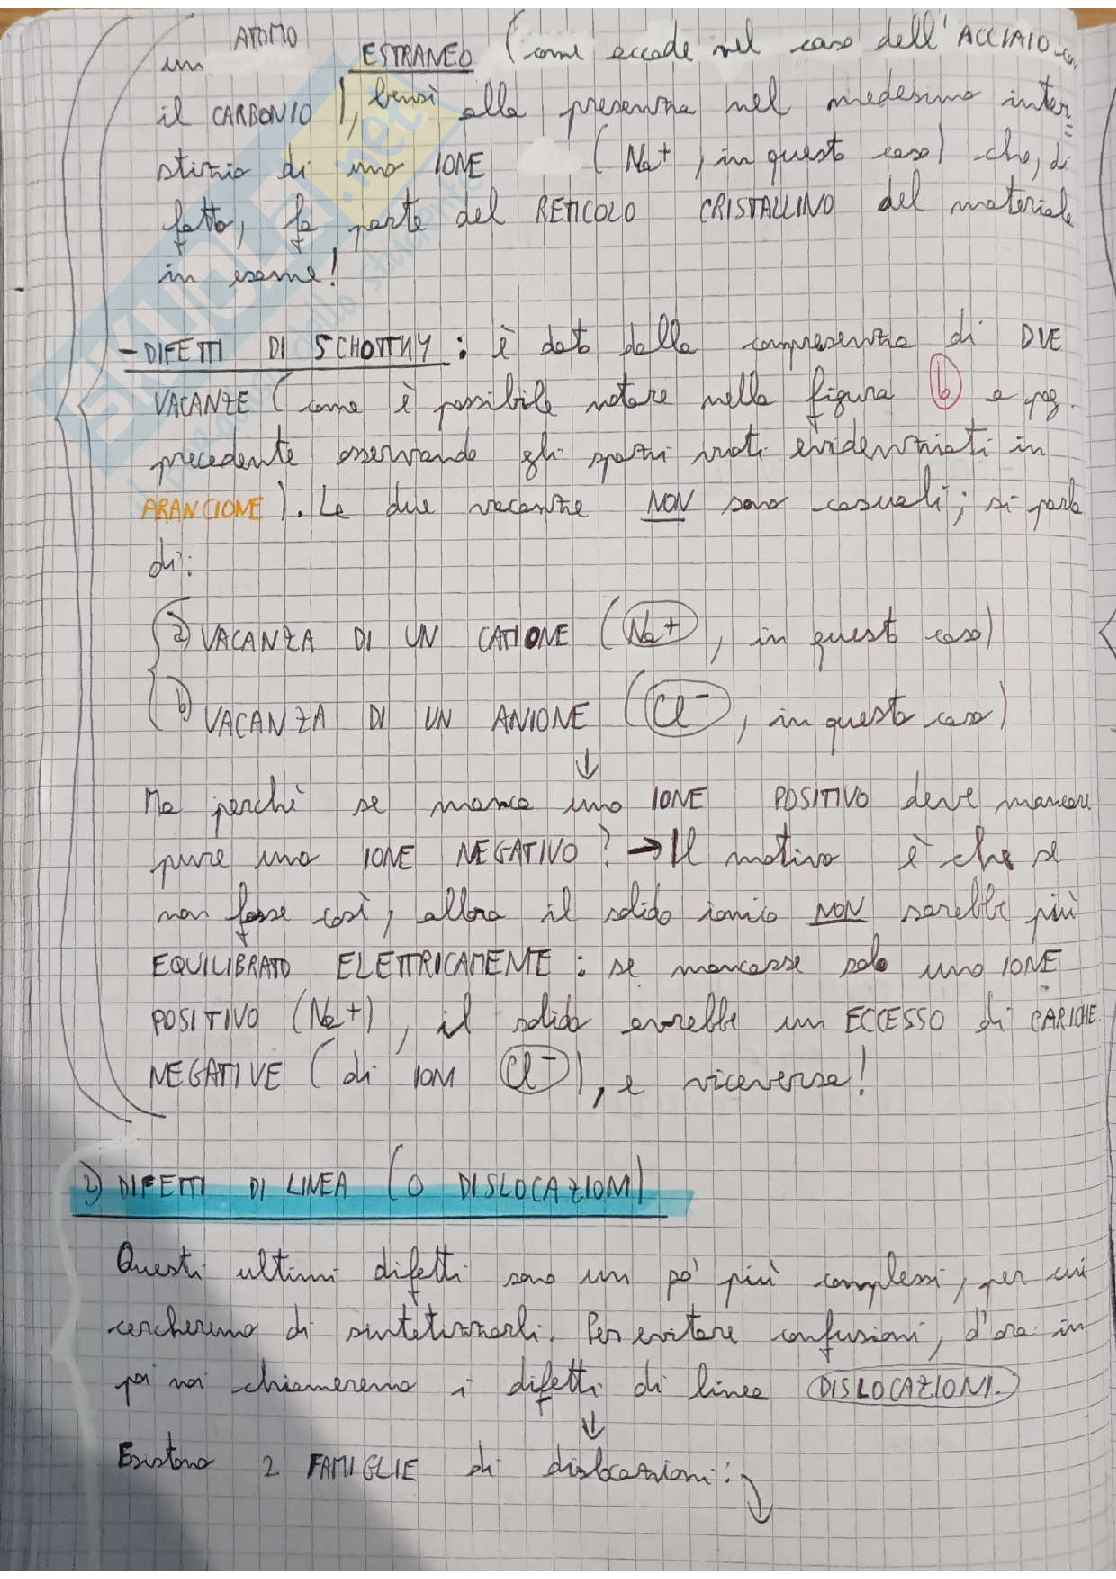 un ATOMO ESTRANEO (come accade nel caso dell'ACCIAIO con
il CARBONIO), bensì alla presenza nel medesimo inter=
stizio di uno IONE (Na+, in questo caso) che, di
fatto, fa parte del RETICOLO CRISTALLINO del materiale
in esame!
- DIFETTI DI SCHOTTKY: è dato dalla compresenza di DUE
VACANZE (come è possibile notare nella figura b a pag.
precedente osservando gli spazi vuoti evidenziati in
ARANCIONE). Le due vacanze NON sono casuali; si parla
di:
a) VACANZA DI UN CATIONE (Na+, in questo caso)
b) VACANZA DI UN ANIONE (Cl-, in questo caso)
↓
Ma perchè se manca uno IONE POSITIVO deve mancare
pure uno IONE NEGATIVO? → Il motivo è che se
non fosse così, allora il solido ionico NON sarebbe più
EQUILIBRATO ELETTRICAMENTE: se mancasse solo uno IONE
POSITIVO (Na+), il solido avrebbe un ECCESSO di CARICHE
NEGATIVE (di IONI Cl-), e viceversa!
2) DIFETTI DI LINEA (O DISLOCAZIONI)
Questi ultimi difetti sono un pò più complessi, per cui
cercheremo di sintetizzarli. Per evitare confusioni, d'ora in
poi noi chiameremo i difetti di linea DISLOCAZIONI.
↓
Esistono 2 FAMIGLIE di dislocazioni: ↓